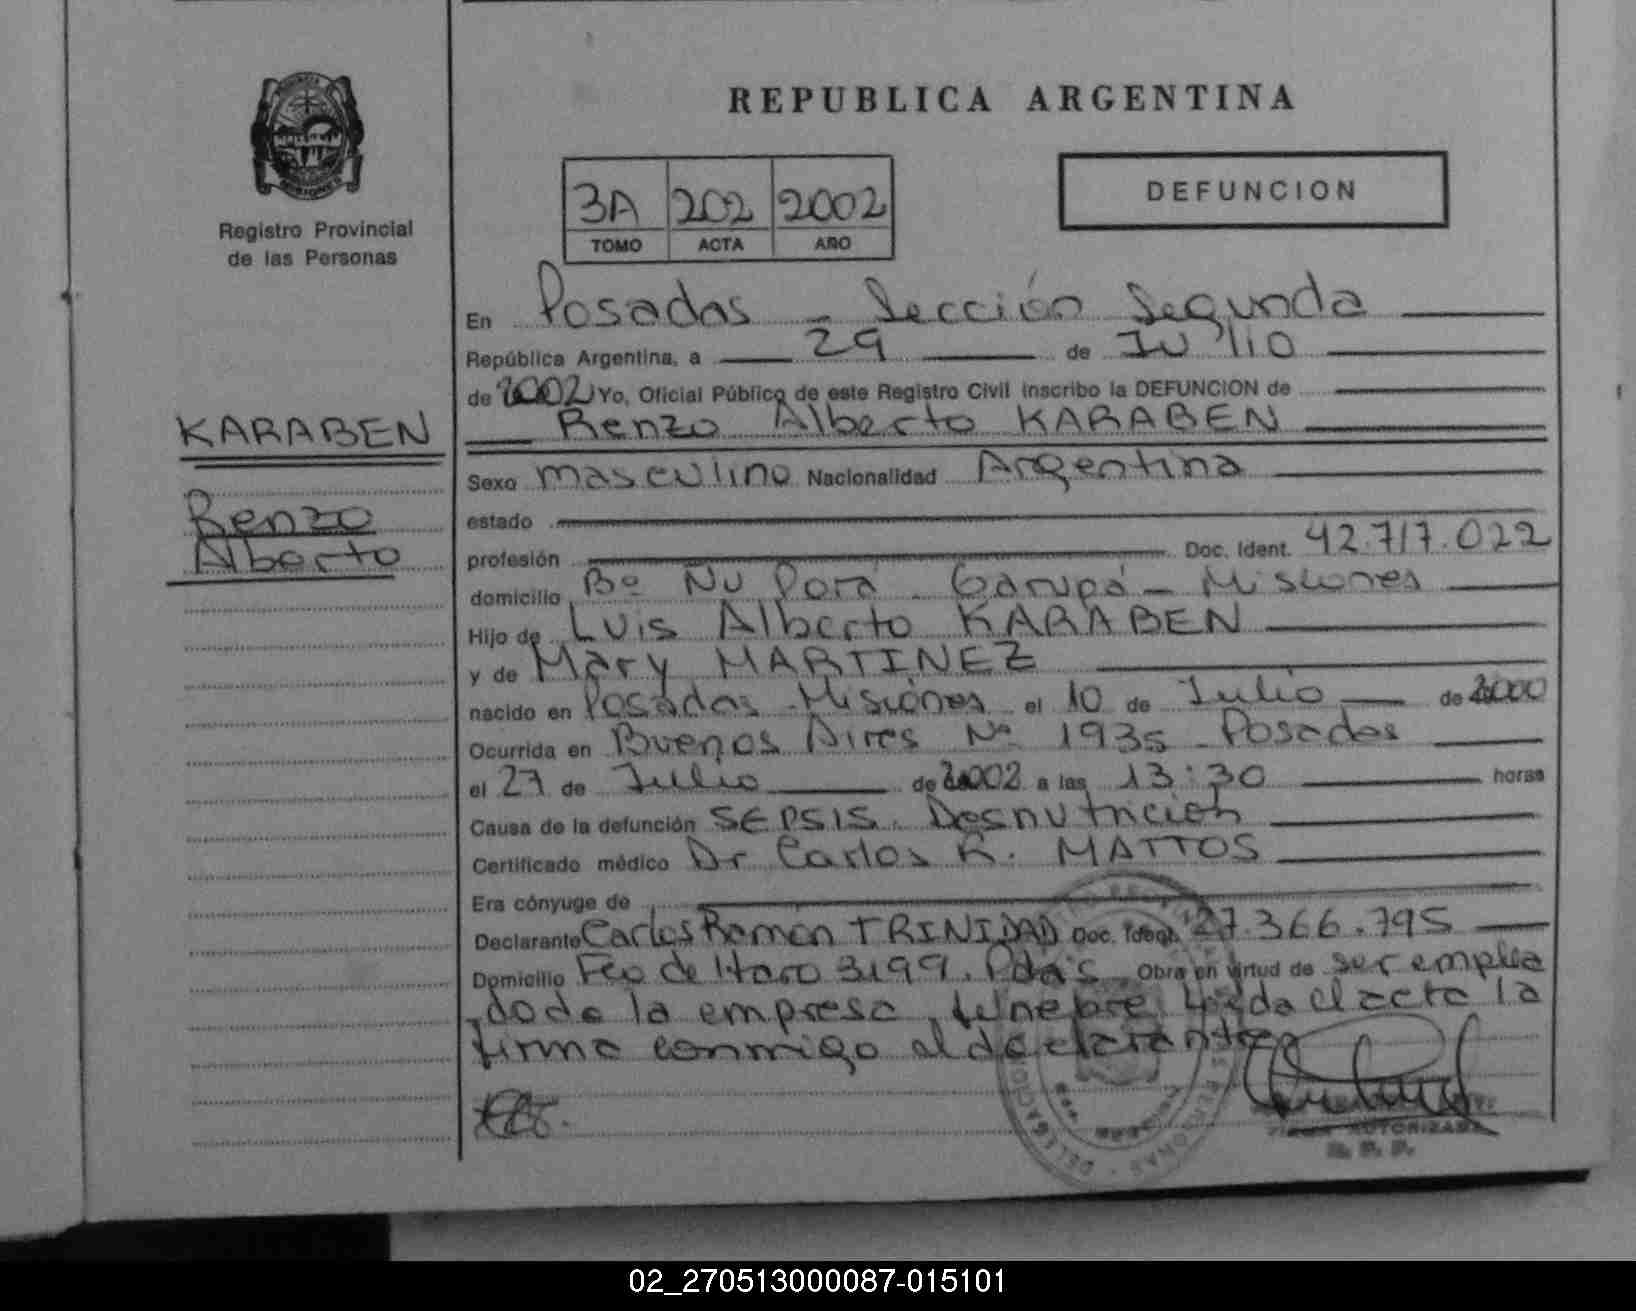 REPUBLICA ARGENTINA
Registro Provincial
de las Personas
3A 202 2002
TOMO ACTA AÑO
DEFUNCION
En Posadas - Sección Segunda
República Argentina, a 29 de Julio
de 2002 Yo, Oficial Público de este Registro Civil inscribo la DEFUNCION de
Renzo Alberto KARABEN
KARABEN
Renzo
Alberto
Sexo masculino Nacionalidad Argentina
estado
profesión Doc. Ident. 42.717.022
domicilio Bº Ñu Porá - Garupá - Misiones
Hijo de Luis Alberto KARABEN
y de Mary MARTINEZ
nacido en Posadas - Misiones el 10 de Julio de 2000
Ocurrida en Buenos Aires Nº 1935 - Posadas
el 27 de Julio de 2002 a las 13:30 horas
Causa de la defunción SEPSIS. Desnutrición
Certificado médico Dr Carlos R. MATTOS
Era cónyuge de
Declarante Carlos Ramón TRINIDAD Doc. Ident. 27.366.795
Domicilio Fco de Haro 3199. Pdas Obra en virtud de ser emplea
do de la empresa funebre. Leida el acta la
firma conmigo el declarante
AUTORIZADA
R. P. P.
02_270513000087-015101